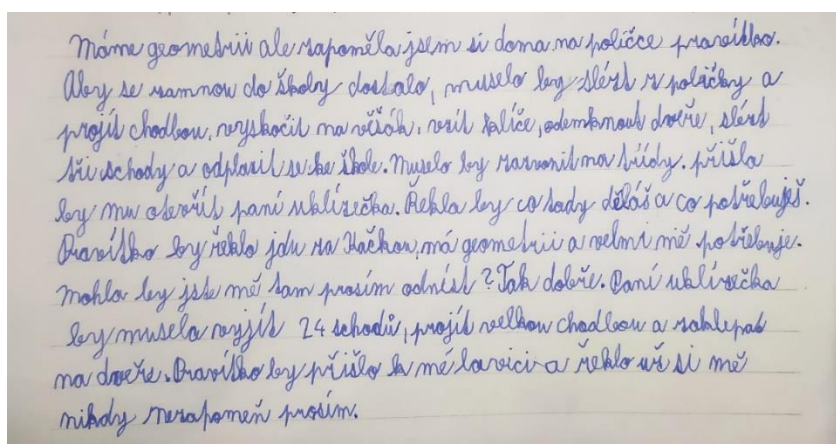 Máme geometrii ale zapoměla jsem si doma na poličce pravítko.
Aby se zamnou do školy dostalo, muselo by slézt z poličky a
projít chodbou, vyskočit na věšák, vzít klíče, odemknout dveře, slézt
tři schody a odplazit se ke škole. Muselo by zazvonit na třídy. přišla
by mu otevřít paní uklízečka. Řekla by co tady děláš a co potřebuješ.
Pravítko by řeklo jdu za Kačkou, má geometrii a velmi mě potřebuje.
Mohla by jste mě tam prosím odnést? Tak dobře. Paní uklízečka
by musela vyjít 24 schodů, projít velkou chodbou a zaklepat
na dveře. Pravítko by přišlo k mé lavici a řeklo už si mě
nikdy nezapomeň prosím.